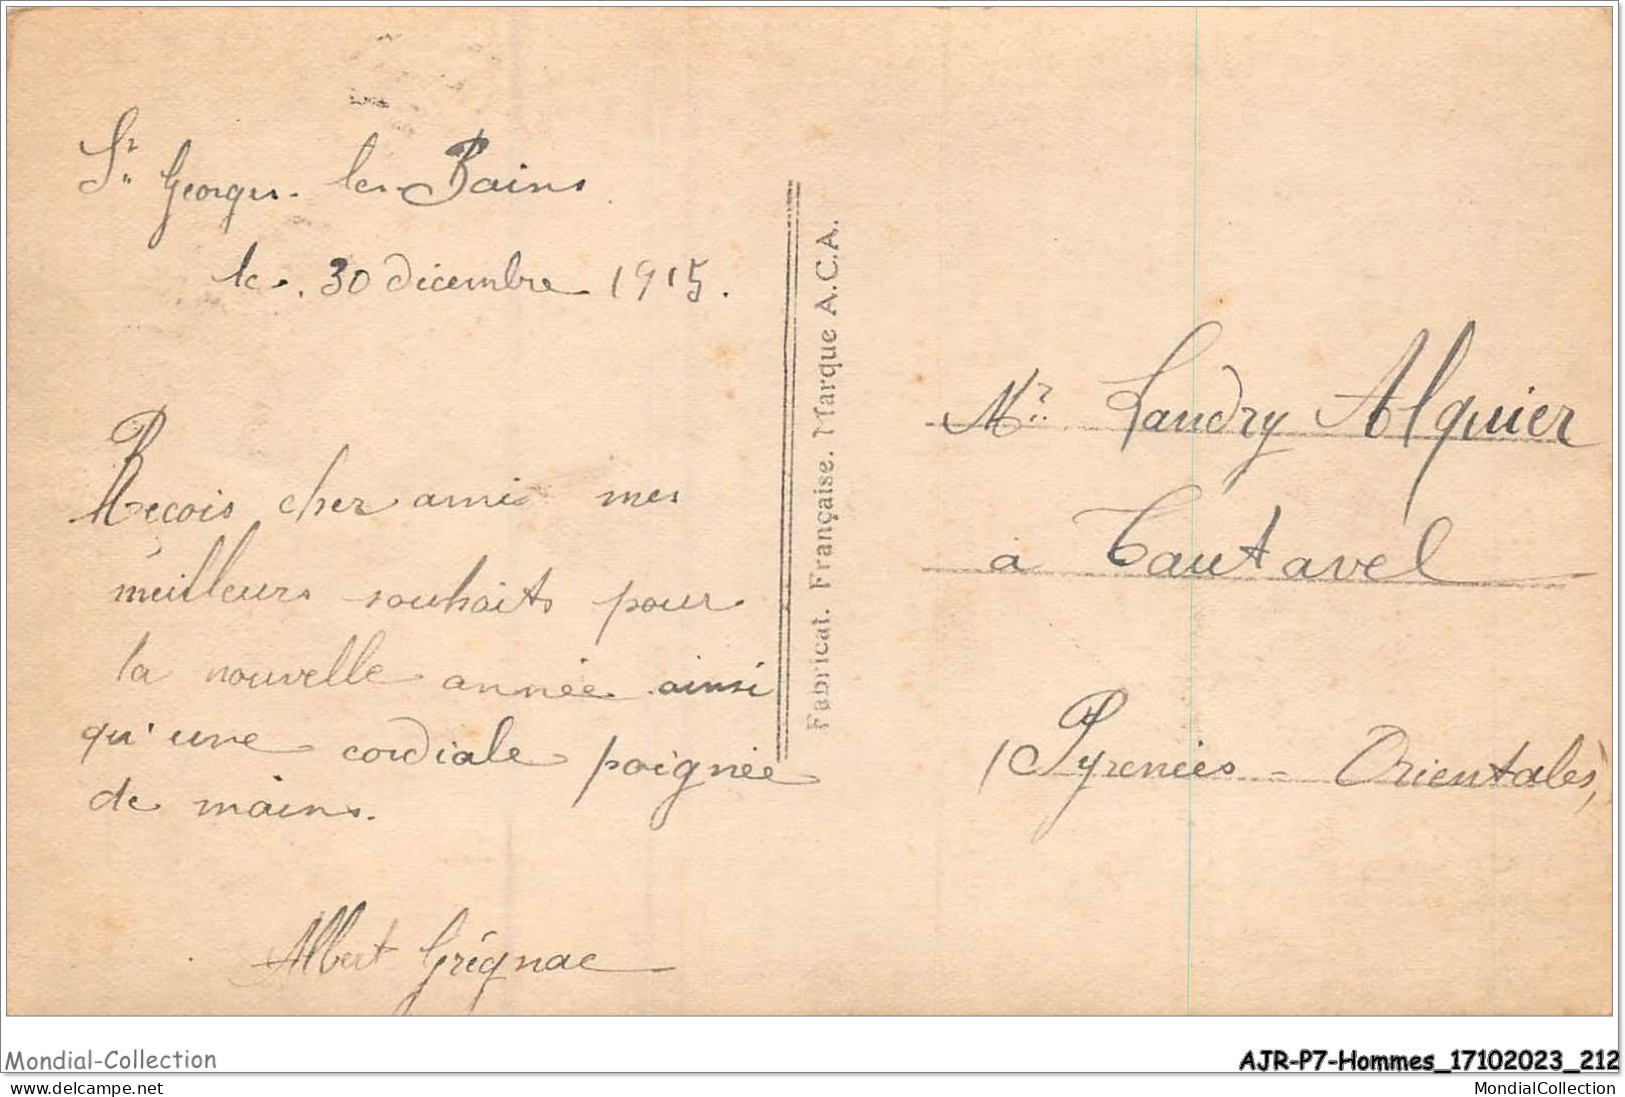 St Georges-les-Bains
le. 30 décembre 1915.
Recois cher ami mes
meilleurs souhaits pour
la nouvelle année ainsi
qu'une cordiale poignée
de mains.
Albert Grégnac
Fabricat. Française. Marque A.C.A.
Mr. Landry Alquier
à Tautavel
(Pyrénées-Orientales)
Mondial-Collection
AJR-P7-Hommes_17102023_212
www.delcampe.net
MondialCollection